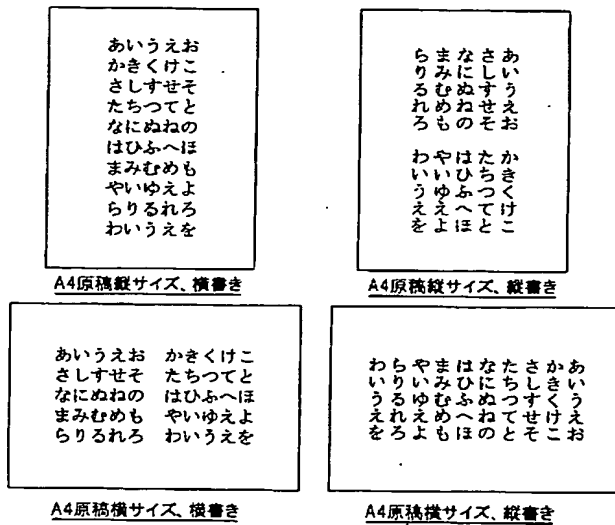 あいうえお
かきくけこ
さしすせそ
たちつてと
なにぬねの
はひふへほ
まみむめも
やいゆえよ
らりるれろ
わいうえを
A4原稿縦サイズ、横書き
あいうえお かきくけこ
さしすせそ たちつてと
なにぬねの はひふへほ
まみむめも やいゆえよ
らりるれろ わいうえを
A4原稿縦サイズ、縦書き
あいうえお かきくけこ
さしすせそ たちつてと
なにぬねの はひふへほ
まみむめも やいゆえよ
らりるれろ わいうえを
A4原稿横サイズ、横書き
あいうえお
かきくけこ
さしすせそ
たちつてと
なにぬねの
はひふへほ
まみむめも
やいゆえよ
らりるれろ
わいうえを
A4原稿横サイズ、縦書き